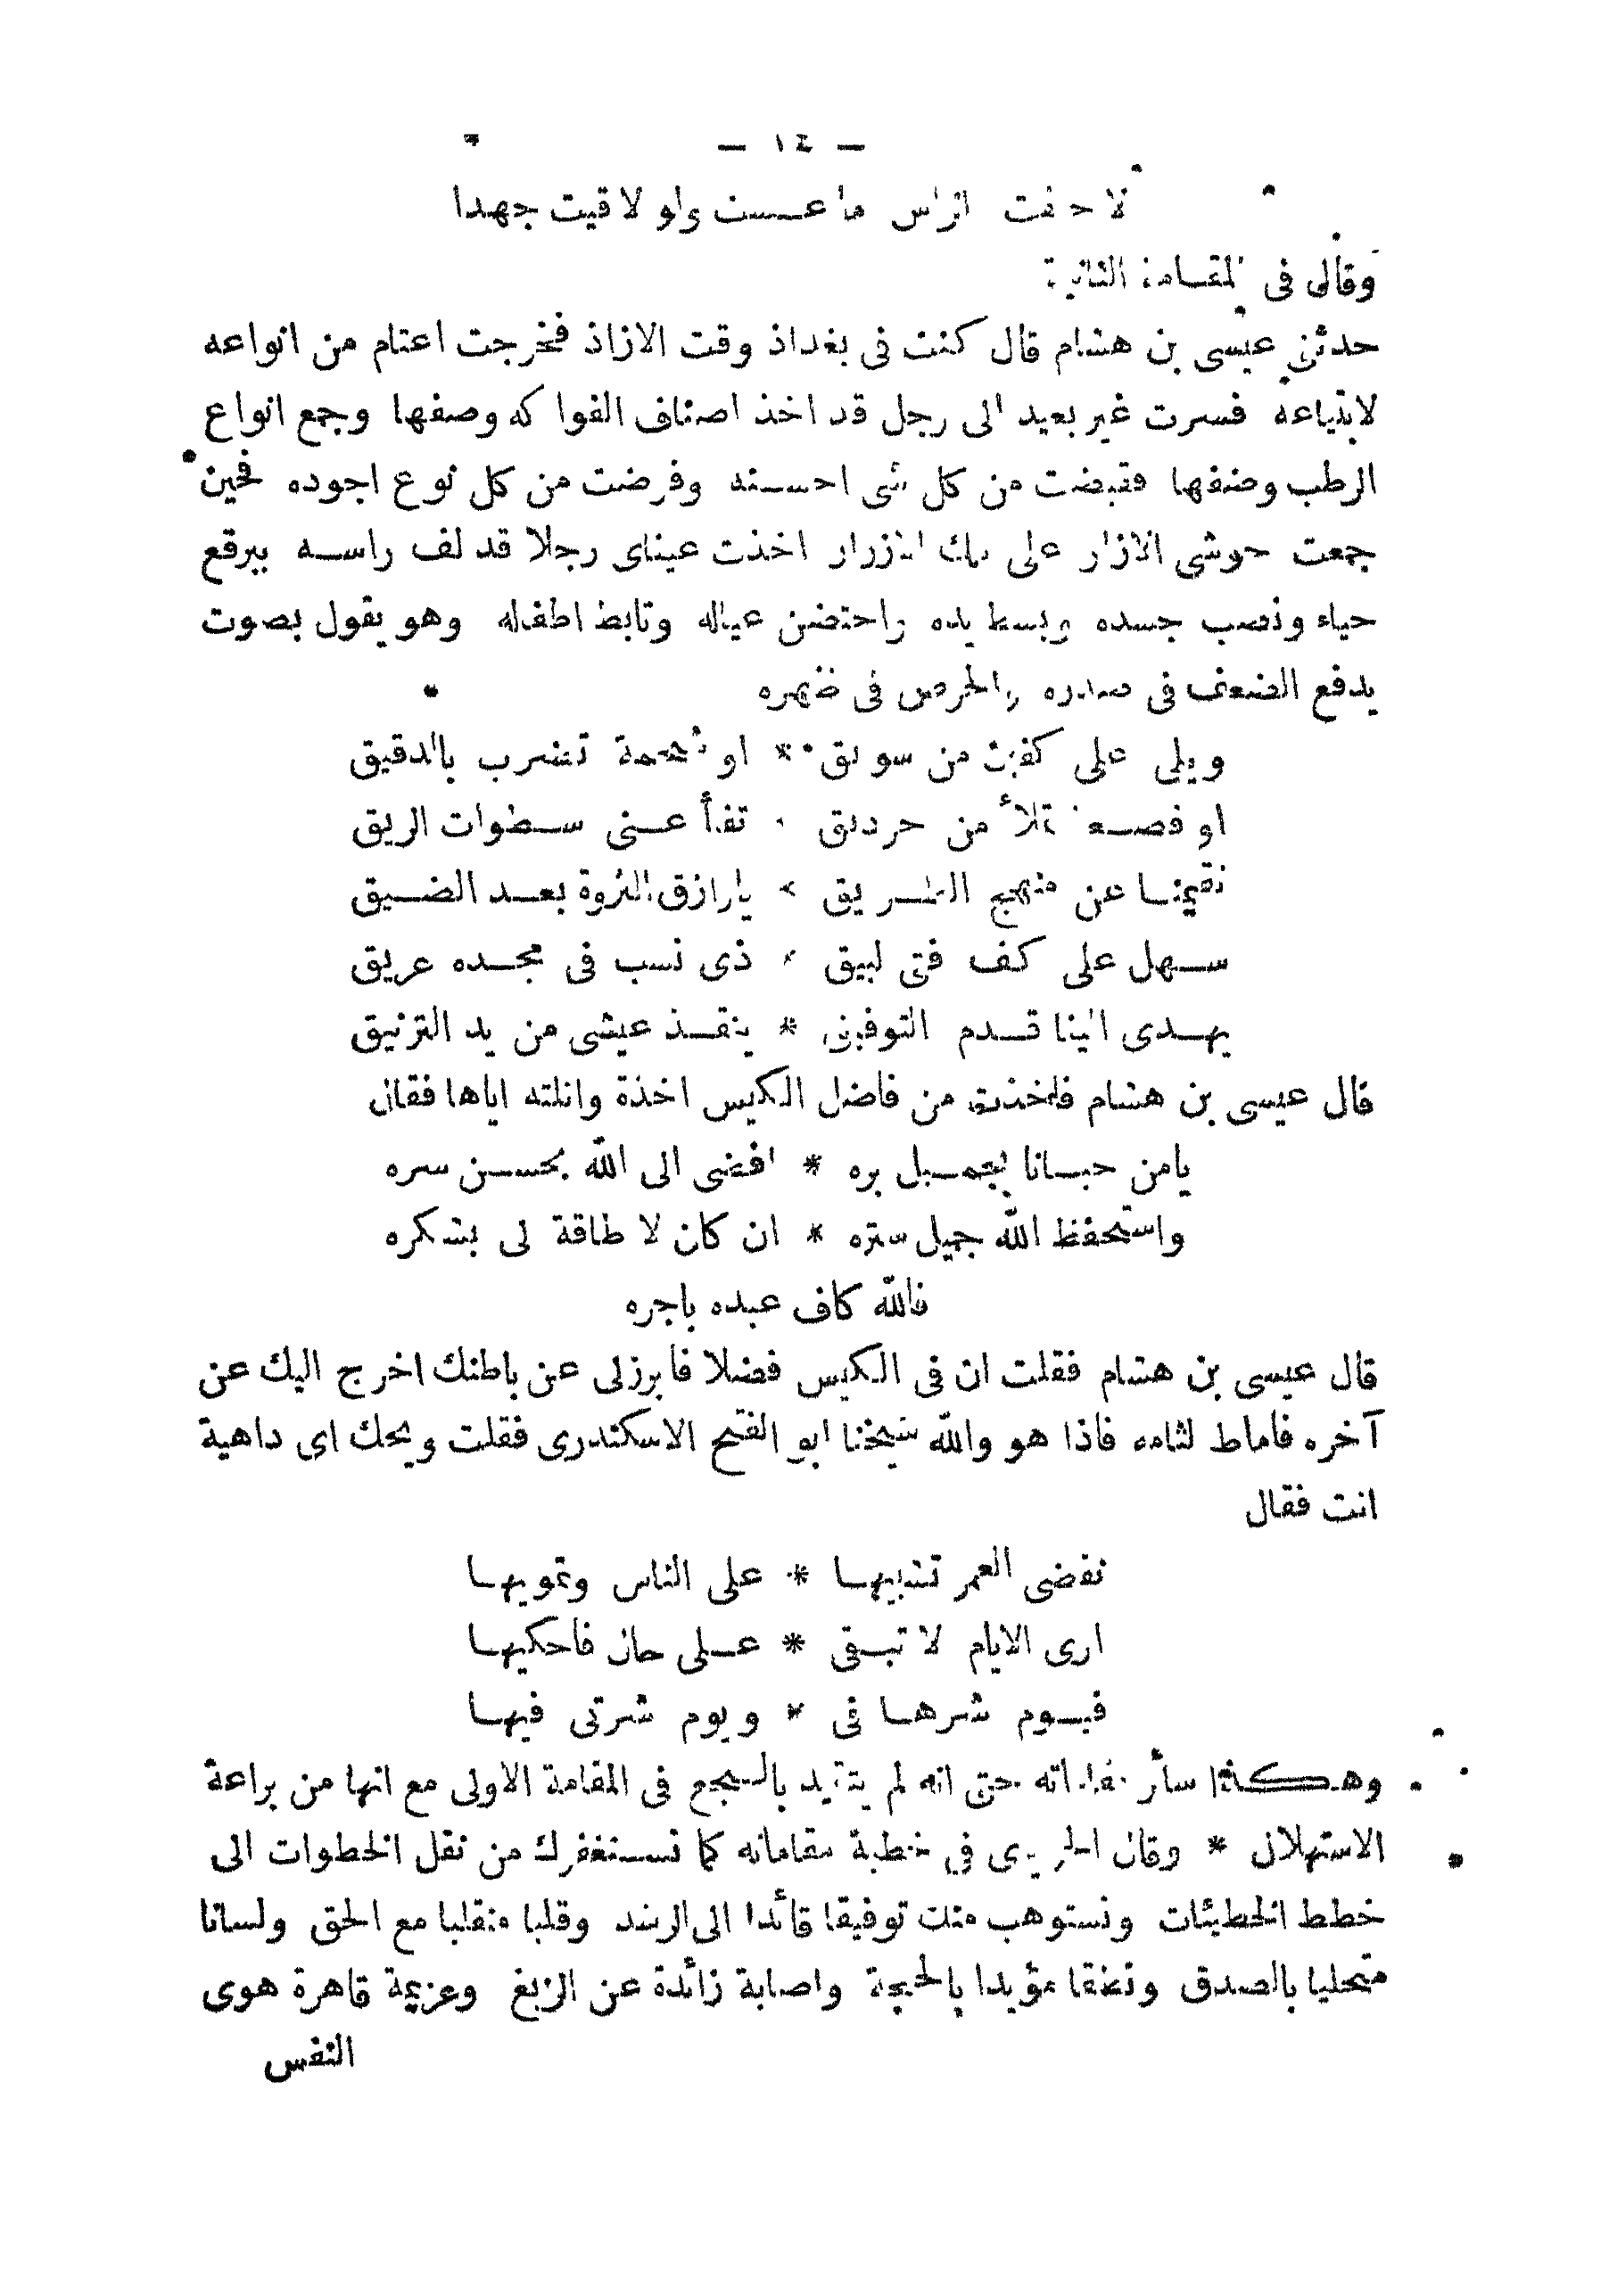 — ١٤ —
لا حفت الراس ما عشت ولو لاقيت جهدا
وقال فى المقامة الثانية
حدثنى عيسى بن هشام قال كنت فى بغداذ وقت الازاذ فخرجت اعتام من انواعه
لابتياعه فسرت غير بعيد الى رجل قد اخذ اصناف الفواكه وصفها وجمع انواع
الرطب وصنفها فقبضت من كل شى احسنه وقرضت من كل نوع اجوده فحين
جمعت حوشى الازار على تلك الازرار اخذت عيناى رجلا قد لف راسه ببرقع
حياء ونصب جسده وبسط يده واحتضن عياله وتابط اطفاله وهو يقول بصوت
يدفع الضعف فى صدره والحرص فى ظهره
ويلى على كفين من سويق * او شحمة تضرب بالدقيق
او قصعة تملأ من خرديق * تفثأ عنى سطوات الريق
تقيمنا عن منهج الطريق * يارازق الثروة بعد الضيق
سهل على كف فتى لبيق * ذى نسب فى مجده عريق
يهدى الينا قدم التوفيق * ينقذ عيشى من يد الترنيق
قال عيسى بن هشام فاخذت من فاضل الكيس اخذة وانلته اياها فقال
يامن حبانا بجميل بره * افضى الى الله بحسن سره
واستحفظ الله جميل ستره * ان كان لا طاقة لى بشكره
فالله كاف عبده باجره
قال عيسى بن هشام فقلت ان فى الكيس فضلا فابرزلى عن باطنك اخرج اليك عن
آخره فاماط لثامه فاذا هو والله شيخنا ابو الفتح الاسكندرى فقلت ويحك اى داهية
انت فقال
نقضى العمر تشبيها * على الناس وتمويها
ارى الايام لا تبقى * على حال فاحكيها
فيوم شرها فى * ويوم شرتى فيها
وهكذا سائر مقاماته حتى انه لم يتقيد بالسجع فى المقامة الاولى مع انها من براعة
الاستهلال * وقال الحريرى فى خطبة مقاماته كما نستغفرك من نقل الخطوات الى
خطط الخطيئات ونستوهب منك توفيقا قائدا الى الرشد وقلبا متقلبا مع الحق ولسانا
متحليا بالصدق ونطقا مؤيدا بالحجة واصابة زائدة عن الزيغ وعزيمة قاهرة هوى
النفس